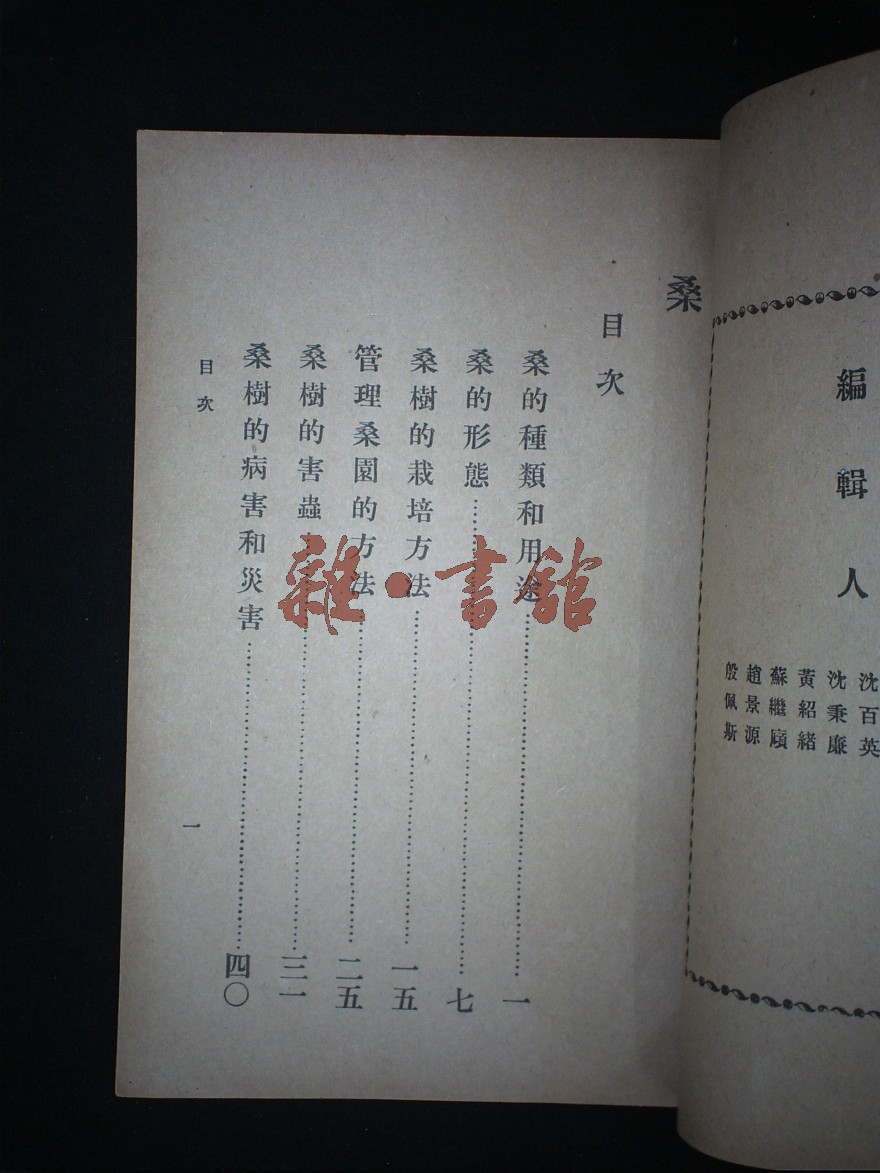 編輯人
沈百英
沈秉廉
黃紹緒
蘇繼廎
趙景源
殷佩斯
桑
目次
桑的種類和用途……一
桑的形態……七
桑樹的栽培方法……一五
管理桑園的方法……二五
桑樹的害蟲……三一
桑樹的病害和災害……四〇
目次
一
雜·書館